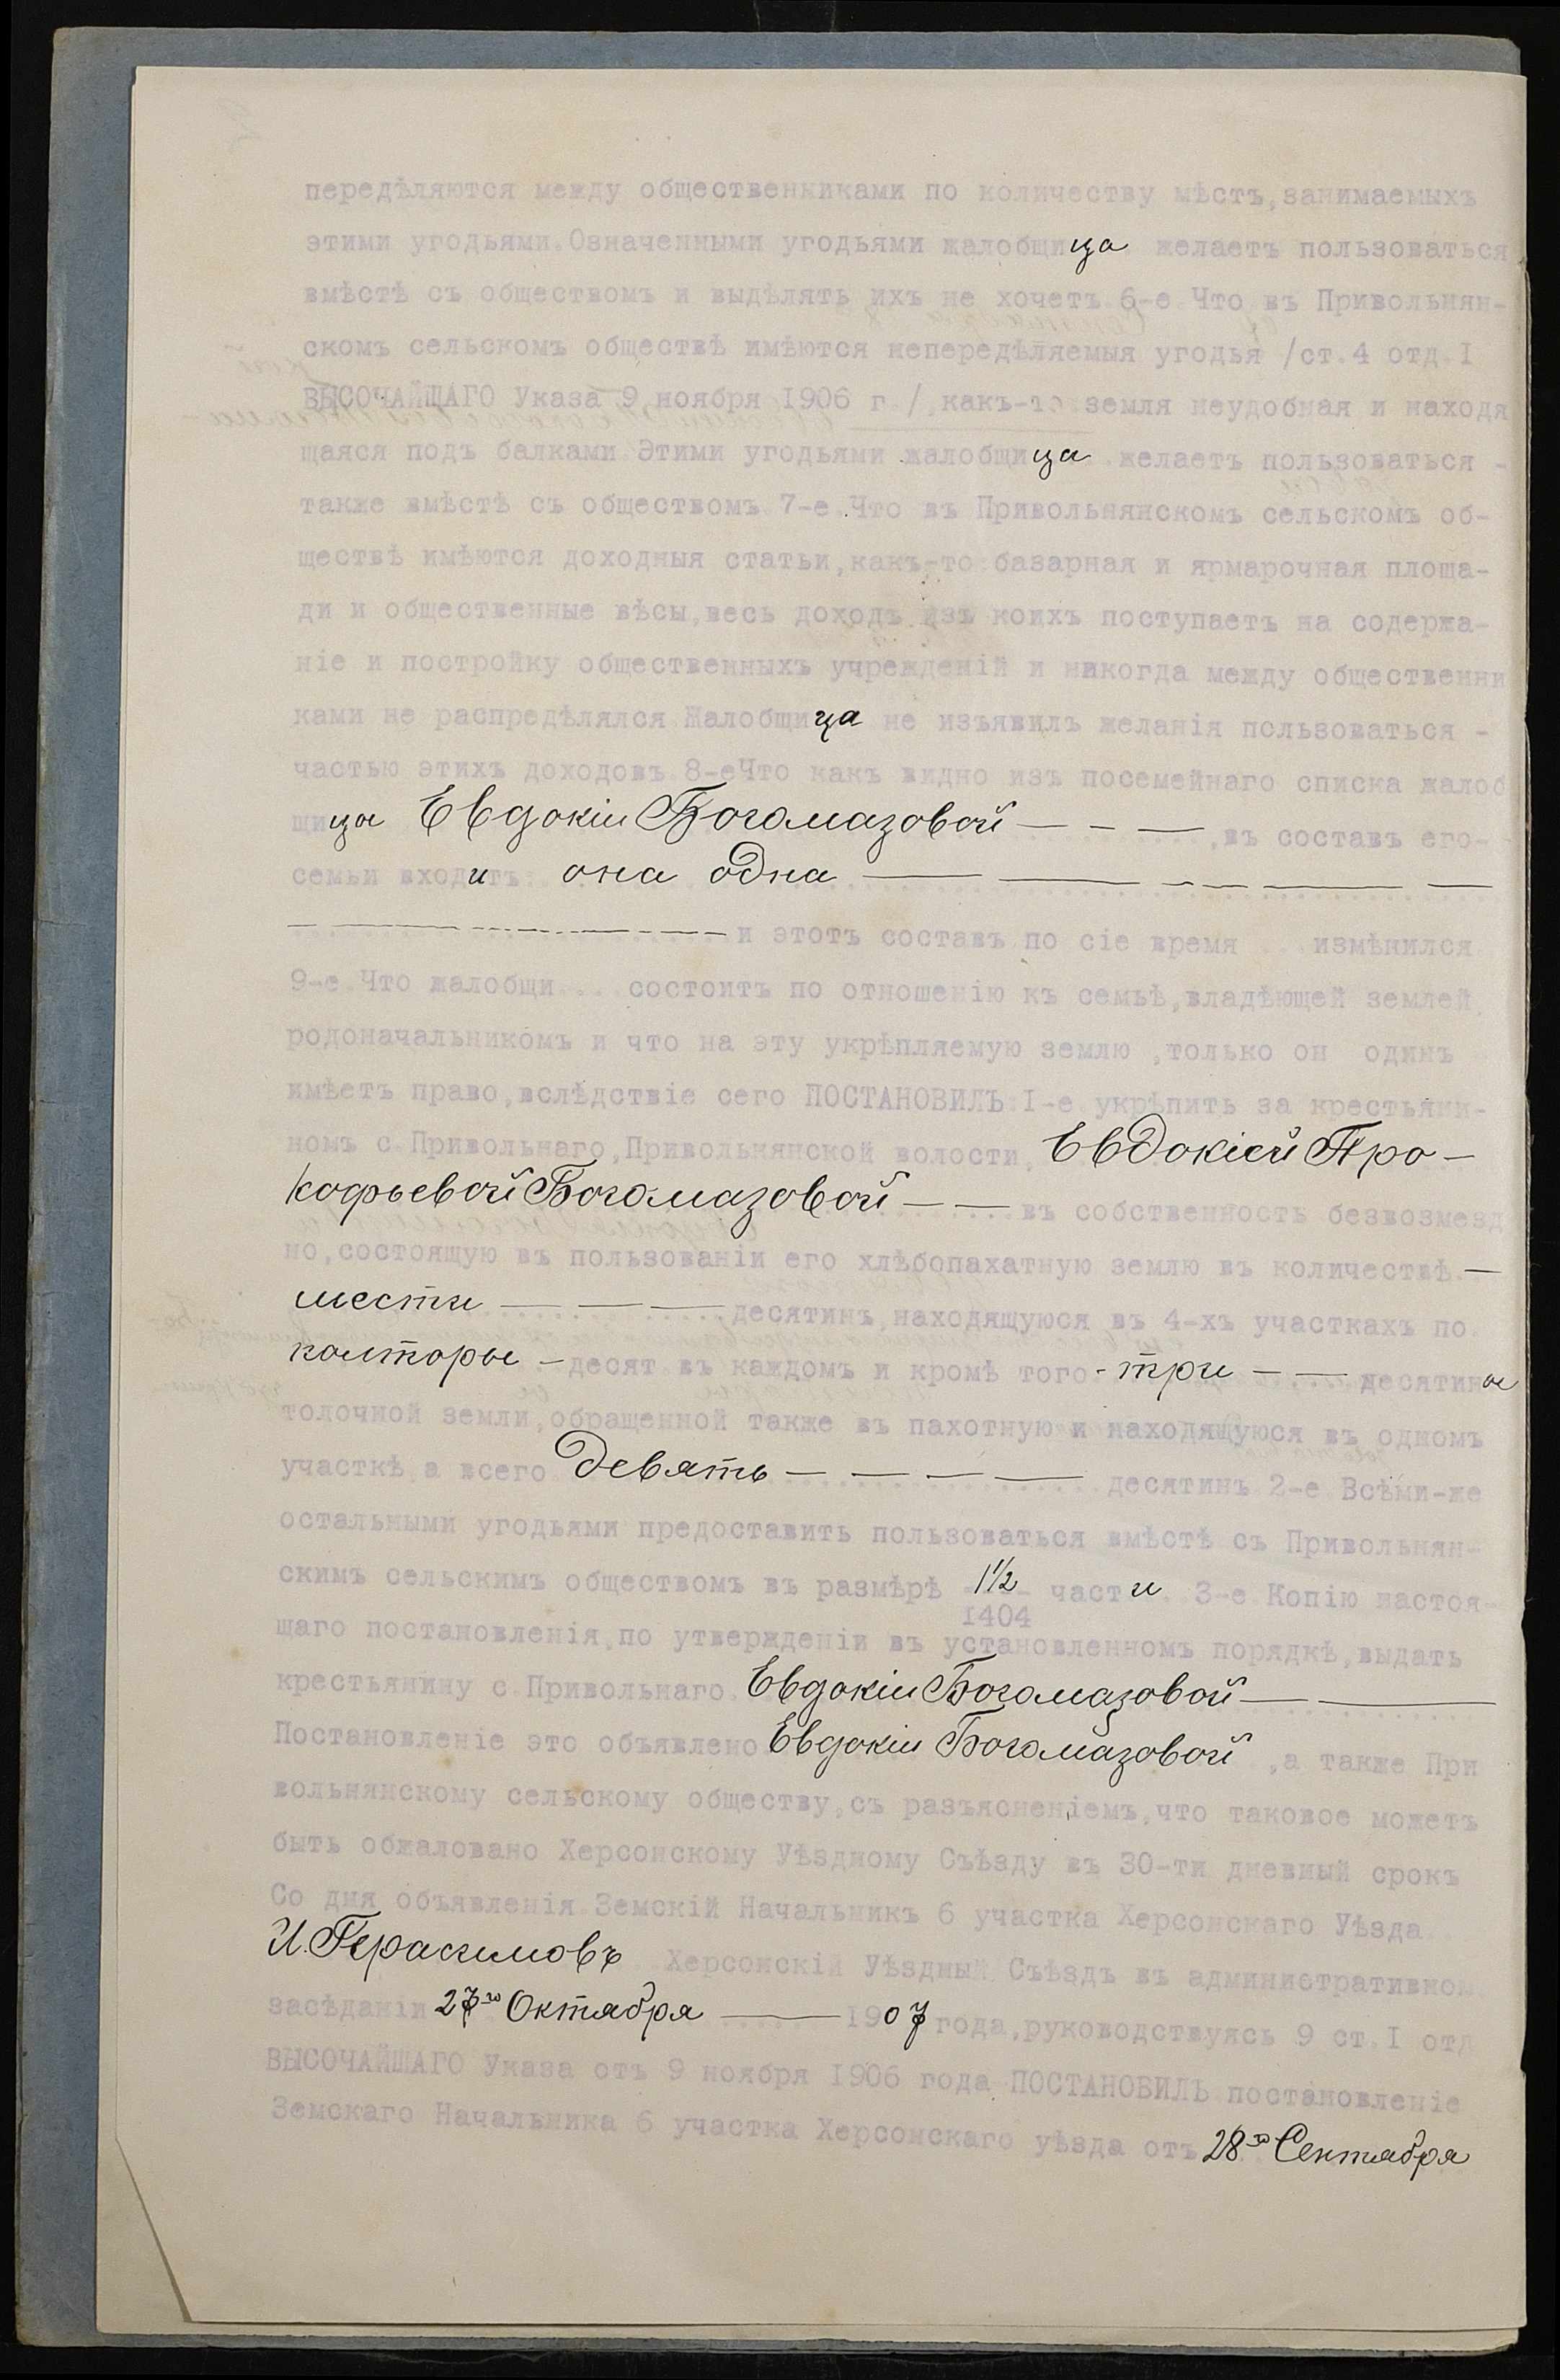 передѣляются между общественниками по количеству мѣстъ,занимаемыхъ
этими угодьями.Означенными угодьями жалобщица желаетъ пользоваться
вмѣстѣ съ обществомъ и выдѣлять ихъ не хочетъ.6-е.Что въ Привольнян-
скомъ сельскомъ обществѣ имѣются непередѣляемыя угодья /ст.4 отд.I
ВЫСОЧАЙШАГО Указа 9 ноября 1906 г./,какъ-то:земля неудобная и находя
щаяся подъ балками.Этими угодьями жалобщица желаетъ пользоваться -
также вмѣстѣ съ обществомъ.7-е.Что въ Привольнянскомъ сельскомъ об-
ществѣ имѣются доходныя статьи,какъ-то:базарная и ярмарочная площа-
ди и общественные вѣсы,весь доходъ изъ коихъ поступаетъ на содержа-
ніе и постройку общественныхъ учрежденій и никогда между общественни
ками не распредѣлялся.Жалобщица не изъявилъ желанія пользоваться -
частью этихъ доходовъ.8-еЧто какъ видно изъ посемейнаго списка жалоб
щица Евдокіи Богомазовой — - — ,въ составъ его-
семьи входитъ: и она одна — — - - — —
— — - - - — и этотъ составъ по сіе время ... измѣнился
9-е.Что жалобщи.... состоитъ по отношенію къ семьѣ,владѣющей землей,
родоначальникомъ и что на эту укрѣпляемую землю ,только он одинъ
имѣетъ право,вслѣдствіе сего ПОСТАНОВИЛЪ:I-е.укрѣпить за крестьяни-
номъ с.Привольнаго,Привольнянской волости, Евдокіей Про-
кофьевой Богомазовой — — въ собственность безвозмезд
но,состоящую въ пользованіи его хлѣбопахатную землю въ количествѣ.—
шести — — — десятинъ,находящуюся въ 4-хъ участкахъ по
полторы - десят.въ каждомъ и кромѣ того - три - — десятины
толочной земли,обращенной также въ пахотную и находящуюся въ одномъ
участкѣ,а всего Девять — — — — десятинъ.2-е.Всѣми-же
остальными угодьями предоставить пользоваться вмѣстѣ съ Привольнян-
скимъ сельскимъ обществомъ въ размѣрѣ 1½ части. 3-е.Копію настоя-
1404
щаго постановленія,по утвержденіи въ установленномъ порядкѣ,выдать
крестьянину с.Привольнаго. Евдокіи Богомазовой — —
Постановленіе это объявлено Евдокіи Богомазовой ,а также При
вольнянскому сельскому обществу,съ разъясненіемъ,что таковое можетъ
быть обжаловано Херсонскому Уѣздному Съѣзду въ 30-ти дневный срокъ
Со дня объявленія.Земскій Начальникъ 6 участка Херсонскаго Уѣзда..
И.Герасимовъ Херсонскій Уѣздный Съѣздъ въ административном
засѣданіи 27го Октября — 1907 года,руководствуясь 9 ст.I отд
ВЫСОЧАЙШАГО Указа отъ 9 ноября 1906 года ПОСТАНОВИЛЪ:постановленіе
Земскаго Начальника 6 участка Херсонскаго уѣзда отъ 28го Сентября